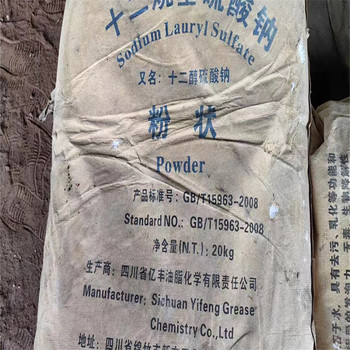 十二烷基硫酸钠
Sodium Lauryl Sulfate
又名：十二醇硫酸钠
粉状
Powder
产品标准号：GB/T15963-2008
Standard NO.: GB/T15963-2008
净含量(N.T.): 20kg
生产商：四川省亿丰油脂化学有限责任公司
Manufacturer: Sichuan Yifeng Grease
Chemistry Co., Ltd
地址：四川省绵竹市新市
具有去污、乳化等功能和